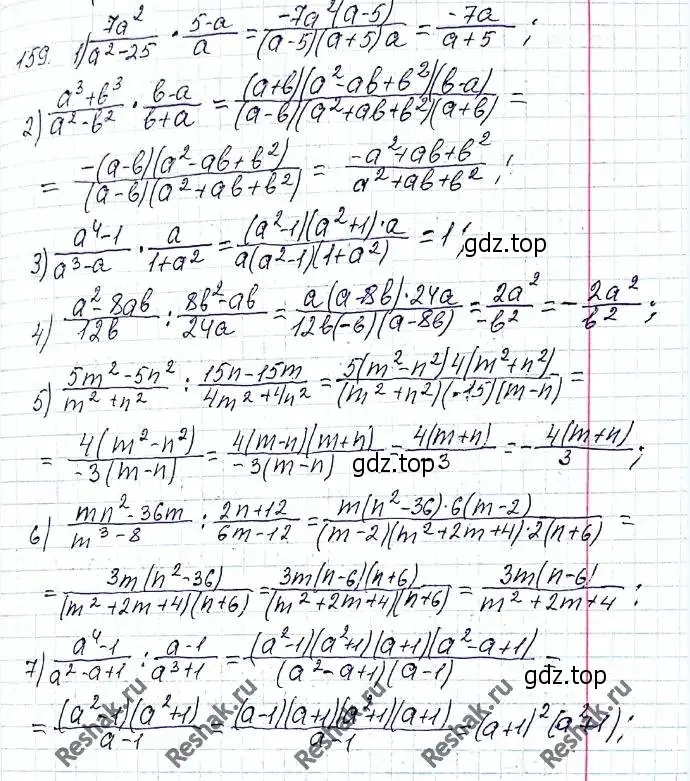 159. 1) 7a²/(a²-25) · (5-a)/a = -7a²(a-5)/((a-5)(a+5)a) = -7a/(a+5) ;
2) (a³+b³)/(a²-b²) · (b-a)/(b+a) = (a+b)(a²-ab+b²)(b-a)/((a-b)(a²+ab+b²)(a+b)) =
= -(a-b)(a²-ab+b²)/((a-b)(a²+ab+b²)) = (-a²+ab+b²)/(a²+ab+b²) ;
3) (a⁴-1)/(a³-a) · a/(1+a²) = (a²-1)(a²+1)·a/(a(a²-1)(1+a²)) = 1 ;
gdz.top
4) (a²-8ab)/12b : (8b²-ab)/24a = a(a-8b)·24a/(12b(-b)(a-8b)) = 2a²/-b² = -2a²/b² ;
5) (5m²-5n²)/(m²+n²) : (15n-15m)/(4m²+4n²) = 5(m²-n²)4(m²+n²)/((m²+n²)(-15)(m-n)) =
= 4(m²-n²)/(-3(m-n)) = 4(m-n)(m+n)/(-3(m-n)) = 4(m+n)/-3 = -4(m+n)/3 ;
gdz.top
6) (mn²-36m)/(m³-8) : (2n+12)/(6m-12) = m(n²-36)·6(m-2)/((m-2)(m²+2m+4)·2(n+6)) =
= 3m(n²-36)/((m²+2m+4)(n+6)) = 3m(n-6)(n+6)/((m²+2m+4)(n+6)) = 3m(n-6)/(m²+2m+4) ;
7) (a⁴-1)/(a²-a+1) : (a-1)/(a³+1) = (a²-1)(a²+1)(a+1)(a²-a+1)/((a²-a+1)(a-1)) =
gdz.top
= (a²-1)(a²+1)/(a-1) = (a-1)(a+1)(a²+1)(a+1)/(a-1) = (a+1)²(a²+1) ;
Reshak.ru
Reshak.ru
Reshak.ru
Reshak.ru